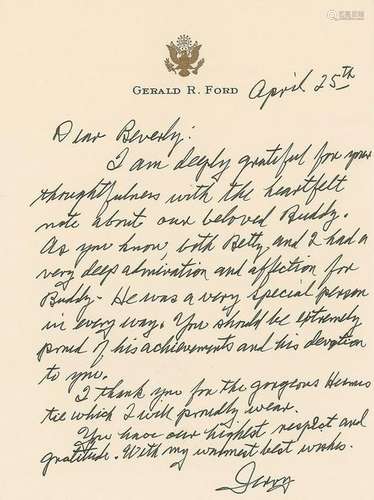 GERALD R. FORD
April 25th
Dear Beverly:
I am deeply grateful for your
thoughtfulness with the heartfelt
note about our beloved Buddy.
As you know, both Betty and I had a
very deep admiration and affection for
Buddy. He was a very special person
in every way. You should be extremely
proud of his achievements and his devotion
to you.
I thank you for the gorgeous Hermes
tie which I will proudly wear.
You have our highest respect and
gratitude. With my warmest best wishes.
Jerry